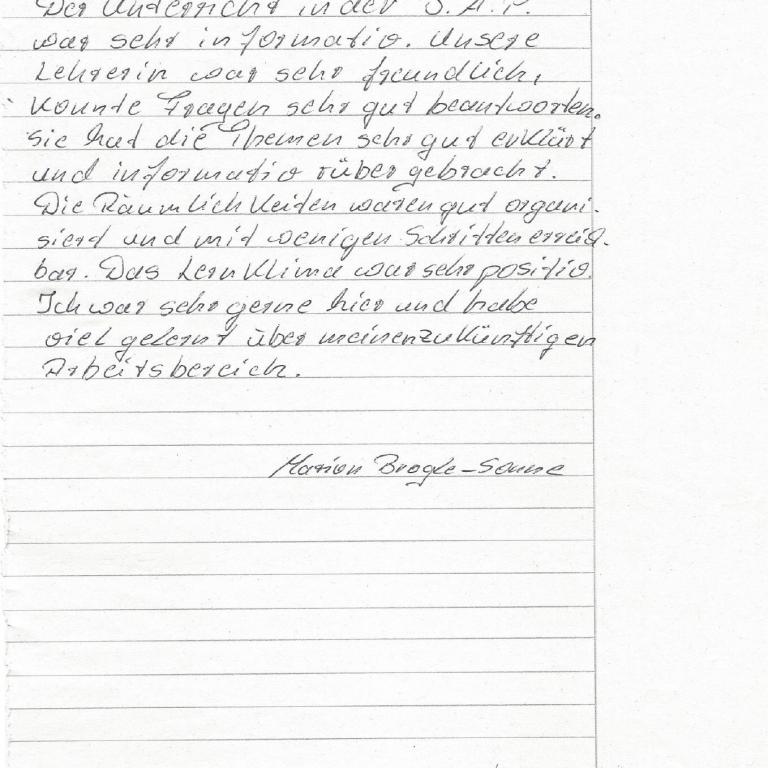 Der Unterricht in der S.A.P.
war sehr informativ. Unsere
Lehrerin war sehr freundlich,
konnte Fragen sehr gut beantworten.
Sie hat die Themen sehr gut erklärt
und informativ rüber gebracht.
Die Räumlichkeiten waren gut organi-
siert und mit wenigen Schritten erreich-
bar. Das Lernklima war sehr positiv.
Ich war sehr gerne hier und habe
viel gelernt über meinen zukünftigen
Arbeitsbereich.
Marion Brogle-Sonne